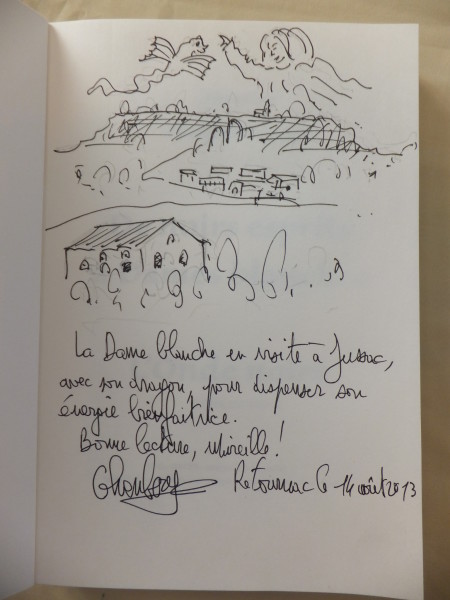 La Dame blanche en visite à Jussac,
avec son dragon, pour dispenser son
énergie bienfaitrice.
Bonne lecture, Mireille!
Retournac le 14 août 2013